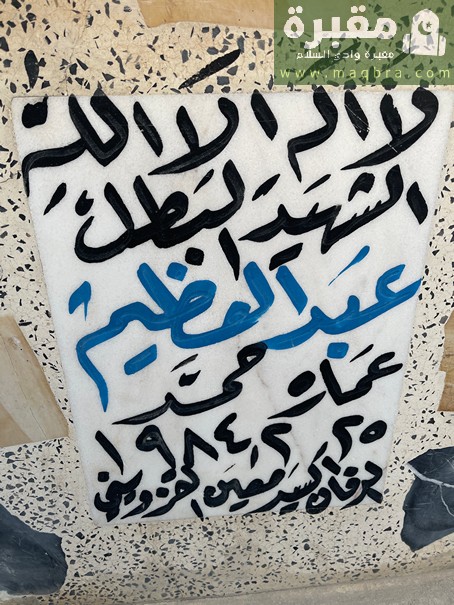 مقبرة
مقبرة وادي السلام
www.maqbra.com
لا اله الا الله
الشهيد البطل
عبد العظيم
عمار حمد
٢٥ ٢ ١٩٨٤
دفان سيد معين القزويني